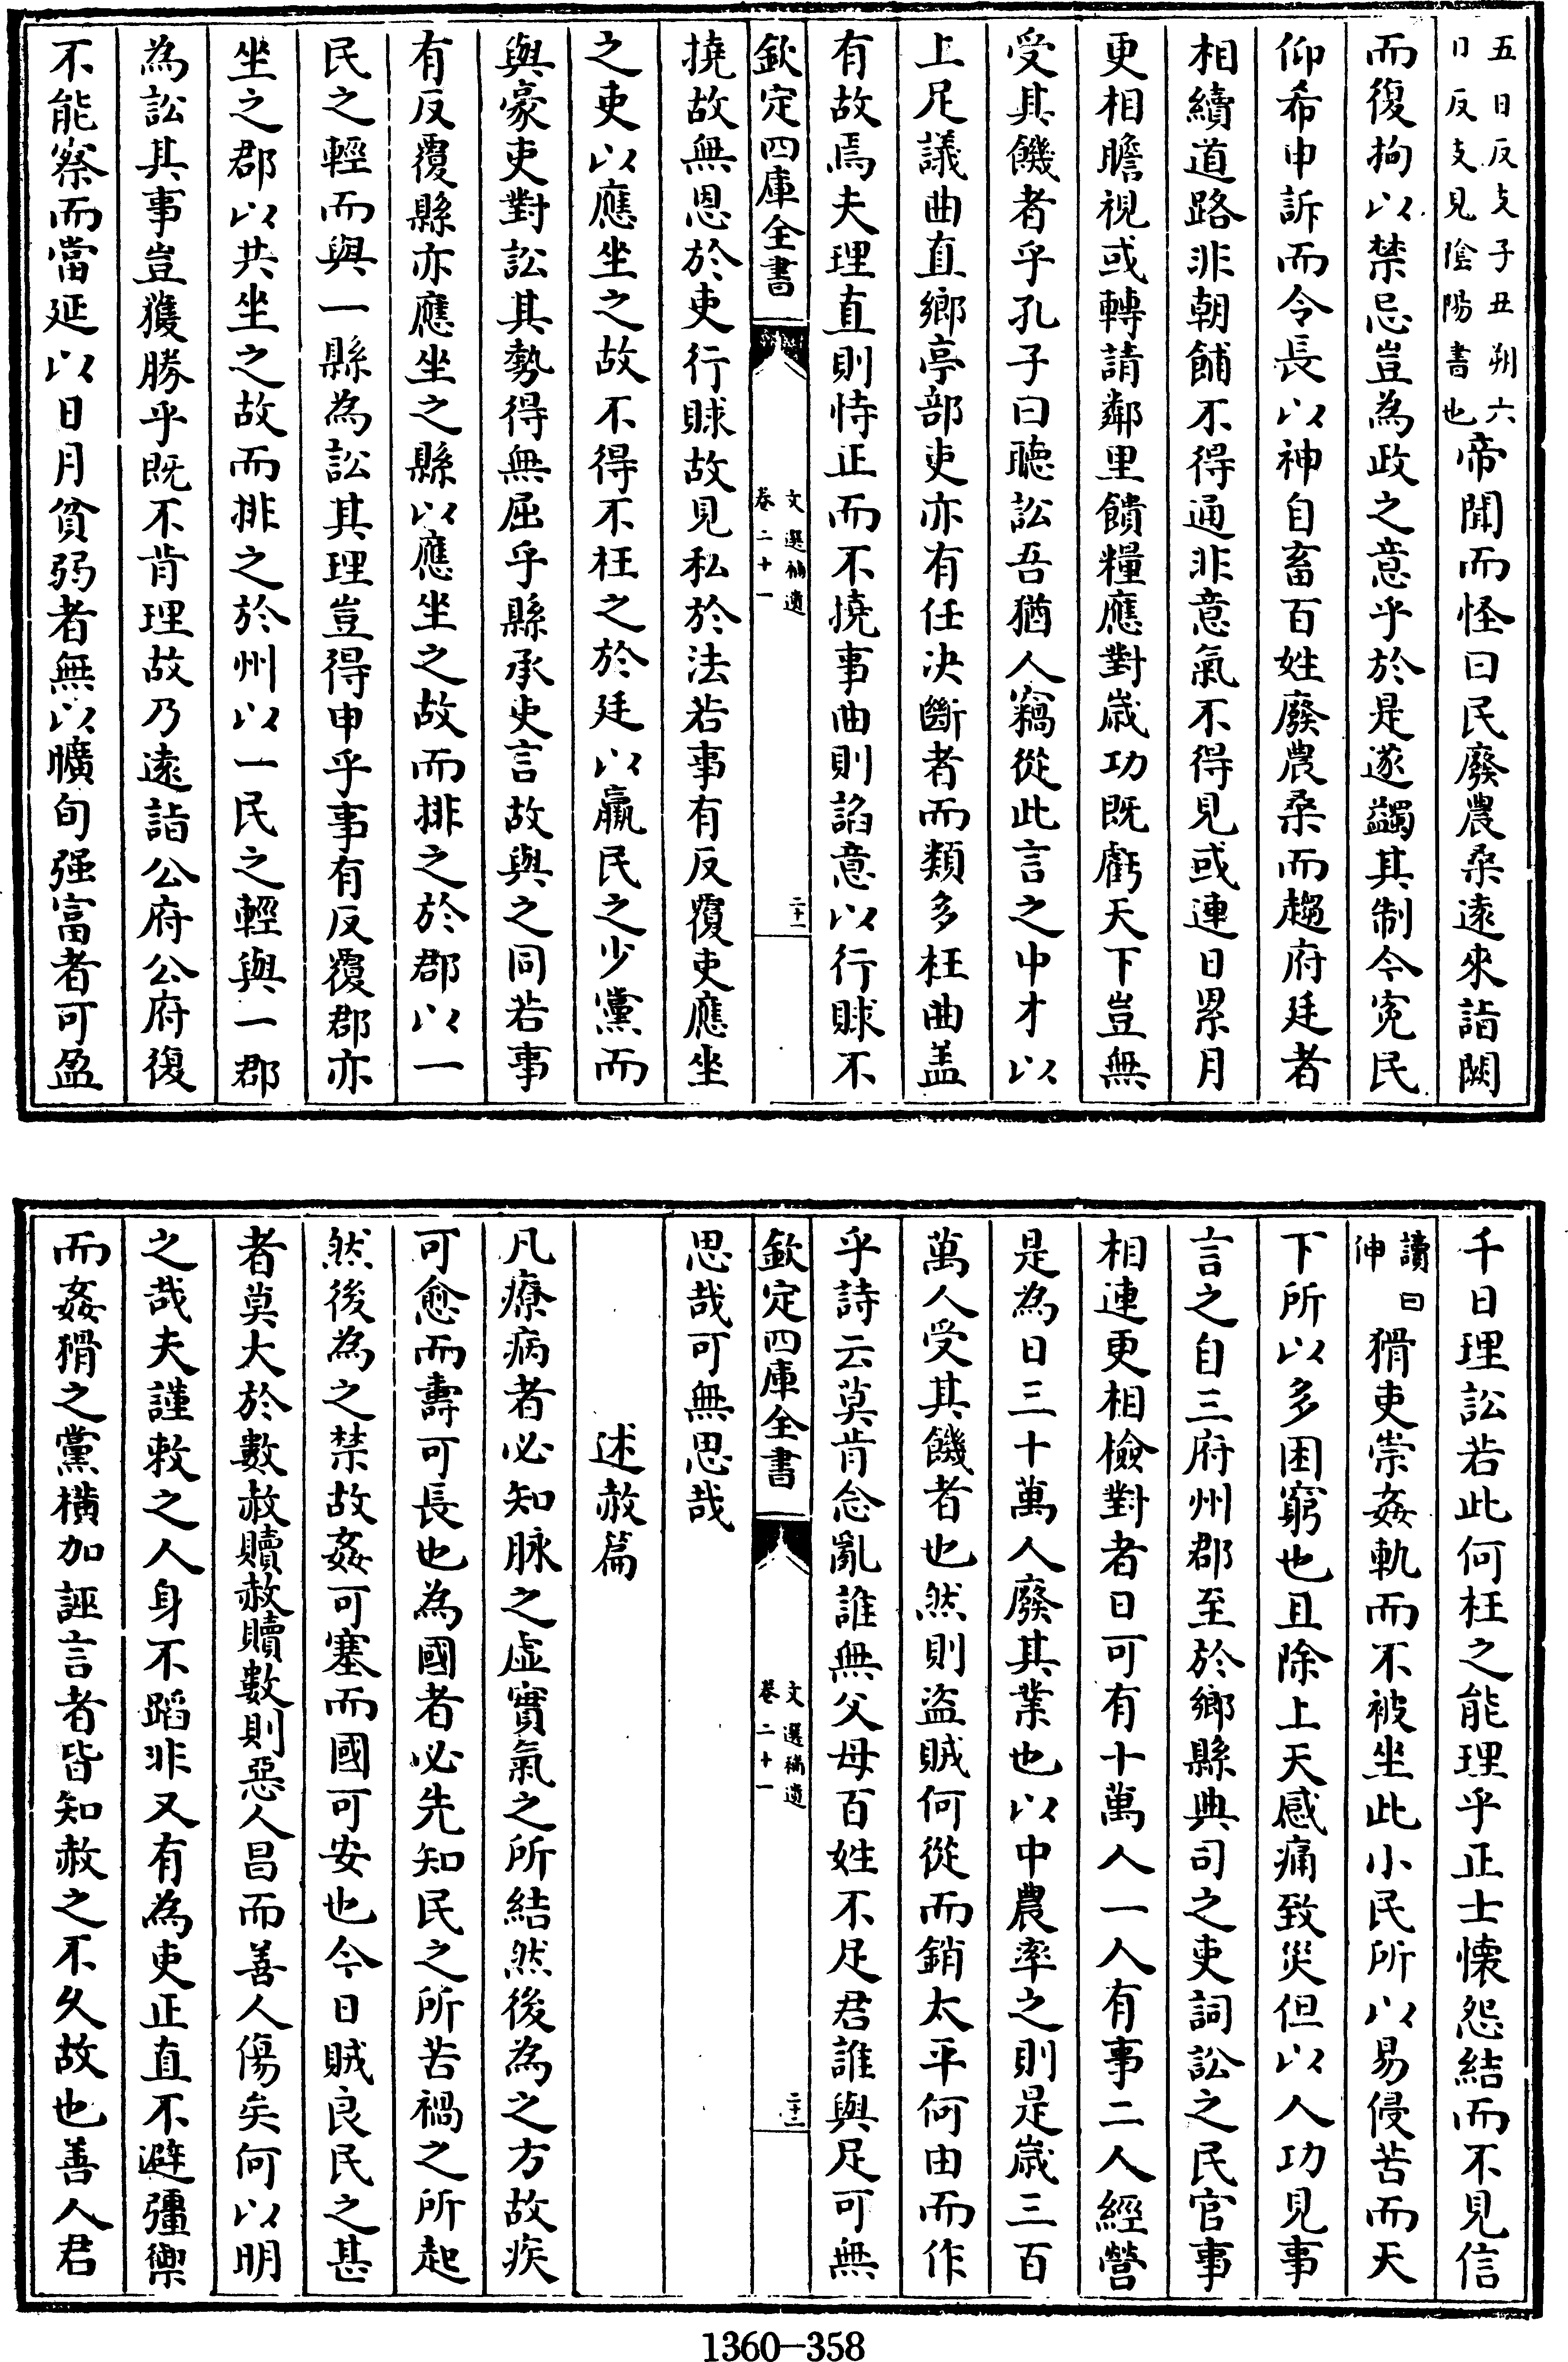 五日反支子丑朔六
日反支見陰陽書也帝聞而怪曰民廢農桑遠來詣闕
而復拘以禁忌豈為政之意乎於是遂蠲其制令寃民
仰希申訴而令長以神自畜百姓廢農桑而趨府廷者
相續道路非朝餔不得通非意氣不得見或連日累月
更相瞻視或轉請鄰里饋糧應對歲功既虧天下豈無
受其饑者乎孔子曰聽訟吾猶人竊從此言之中才以
上足議曲直鄉亭部吏亦有任决斷者而類多枉曲盖
有故焉夫理直則恃正而不撓事曲則諂意以行賕不
欽定四庫全書
文選補遺
卷二十一
二十一
撓故無恩於吏行賕故見私於法若事有反覆吏應坐
之吏以應坐之故不得不枉之於廷以羸民之少黨而
與豪吏對訟其勢得無屈乎縣承吏言故與之同若事
有反覆縣亦應坐之縣以應坐之故而排之於郡以一
民之輕而與一縣為訟其理豈得申乎事有反覆郡亦
坐之郡以共坐之故而排之於州以一民之輕與一郡
為訟其事豈獲勝乎既不肯理故乃遠詣公府公府復
不能察而當延以日月貧弱者無以曠旬强富者可盈
千日理訟若此何枉之能理乎正士懐怨結而不見信
讀曰
伸
猾吏崇姦軌而不被坐此小民所以易侵苦而天
下所以多困窮也且除上天感痛致災但以人功見事
言之自三府州郡至於鄉縣典司之吏詞訟之民官事
相連更相檢對者日可有十萬人一人有事二人經營
是為日三十萬人廢其業也以中農率之則是歲三百
萬人受其饑者也然則盜賊何從而銷太平何由而作
乎詩云莫肯念亂誰無父母百姓不足君誰與足可無
欽定四庫全書
文選補遺
卷二十一
二十二
思哉可無思哉
述赦篇
凡療病者必知脉之虚實氣之所結然後為之方故疾
可愈而壽可長也為國者必先知民之所苦禍之所起
然後為之禁故姦可塞而國可安也今日賊良民之甚
者莫大於數赦贖赦贖數則惡人昌而善人傷矣何以明
之哉夫謹敕之人身不蹈非又有為吏正直不避彊禦
而姦猾之黨横加誣言者皆知赦之不久故也善人君
1360-358